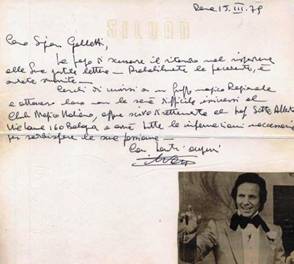 SILVAN
15. III. 78
Caro Signor Galletti,
La prego di scusare il ritardo nel rispondere
alla Sua gentile lettera - Probabilmente la presente, è
Cerchi di unirsi a un gruppo magico Regionale
e attraverso loro non le sarà difficile iscriversi al
Club Magico Italiano, oppure scriva direttamente al Prof Sitta Alberto
160 Bologna e avrà tutte le informazioni necessarie
per soddisfare la sua passione -
Con tanti auguri
Silvan